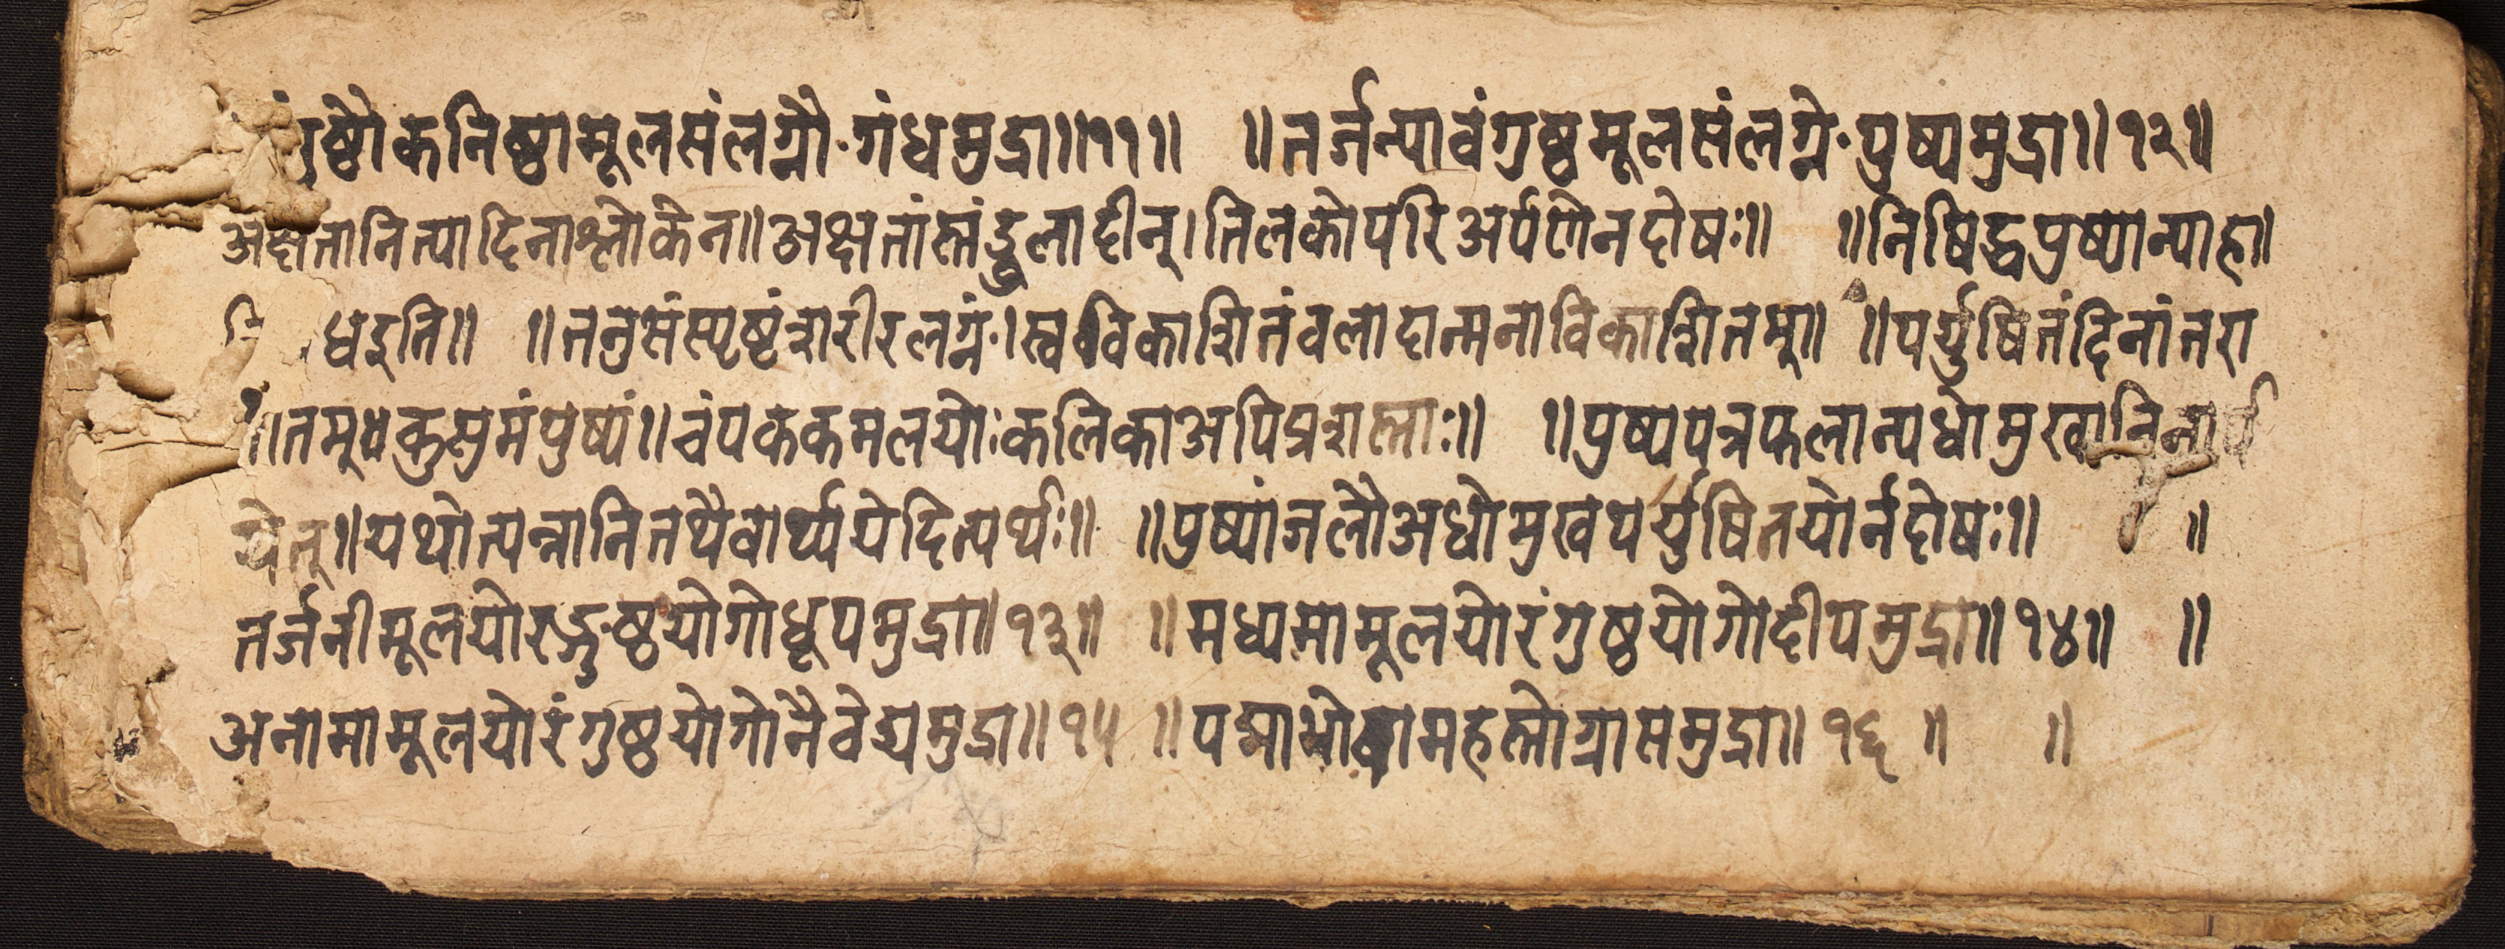 गुष्ठौकनिष्ठामूलसंलग्नौ॰गंधमुद्रा॥११॥ ॥तर्जन्यावंगुष्ठमूलसंलग्ने॰पुष्पमुद्रा॥१२॥
अक्षतानित्यादिनाश्लोकेन॥अक्षतांस्तंद्दुलादीन्।तिलकोपरिअर्पणेनदोषः॥ ॥निषिद्धपुष्पान्याह॥
द्धइति॥ ॥तनुसंस्पृष्टंशरीरलग्नं॰।स्वविकाशितंवलादात्मनाविकाशितम्॥ ॥पर्युषितंदिनांतरा
॥तमूधकुसुमंपुष्पं॥चंपककमलयोःकलिकाअपिप्रशस्ताः॥ ॥पुष्पपत्रफलान्यधोमुखानिनार्प
येत्॥यथोत्पन्नानितथैवार्प्पयेदित्यर्थः॥ ॥पुष्पांजलौअधोमुखपर्युषितयोर्नदोषः॥ ॥
तर्जनीमूलयोरङ्गुष्ठयोगोधूपमुद्रा॥१३॥ ॥मध्यमामूलयोरंगुष्ठयोगोदीपमुद्रा॥१४॥ ॥
अनामामूलयोरंगुष्ठयोगोनैवेद्यमुद्रा॥१५ ॥पद्माभोवामहस्तोग्रासमुद्रा॥१६॥ ॥